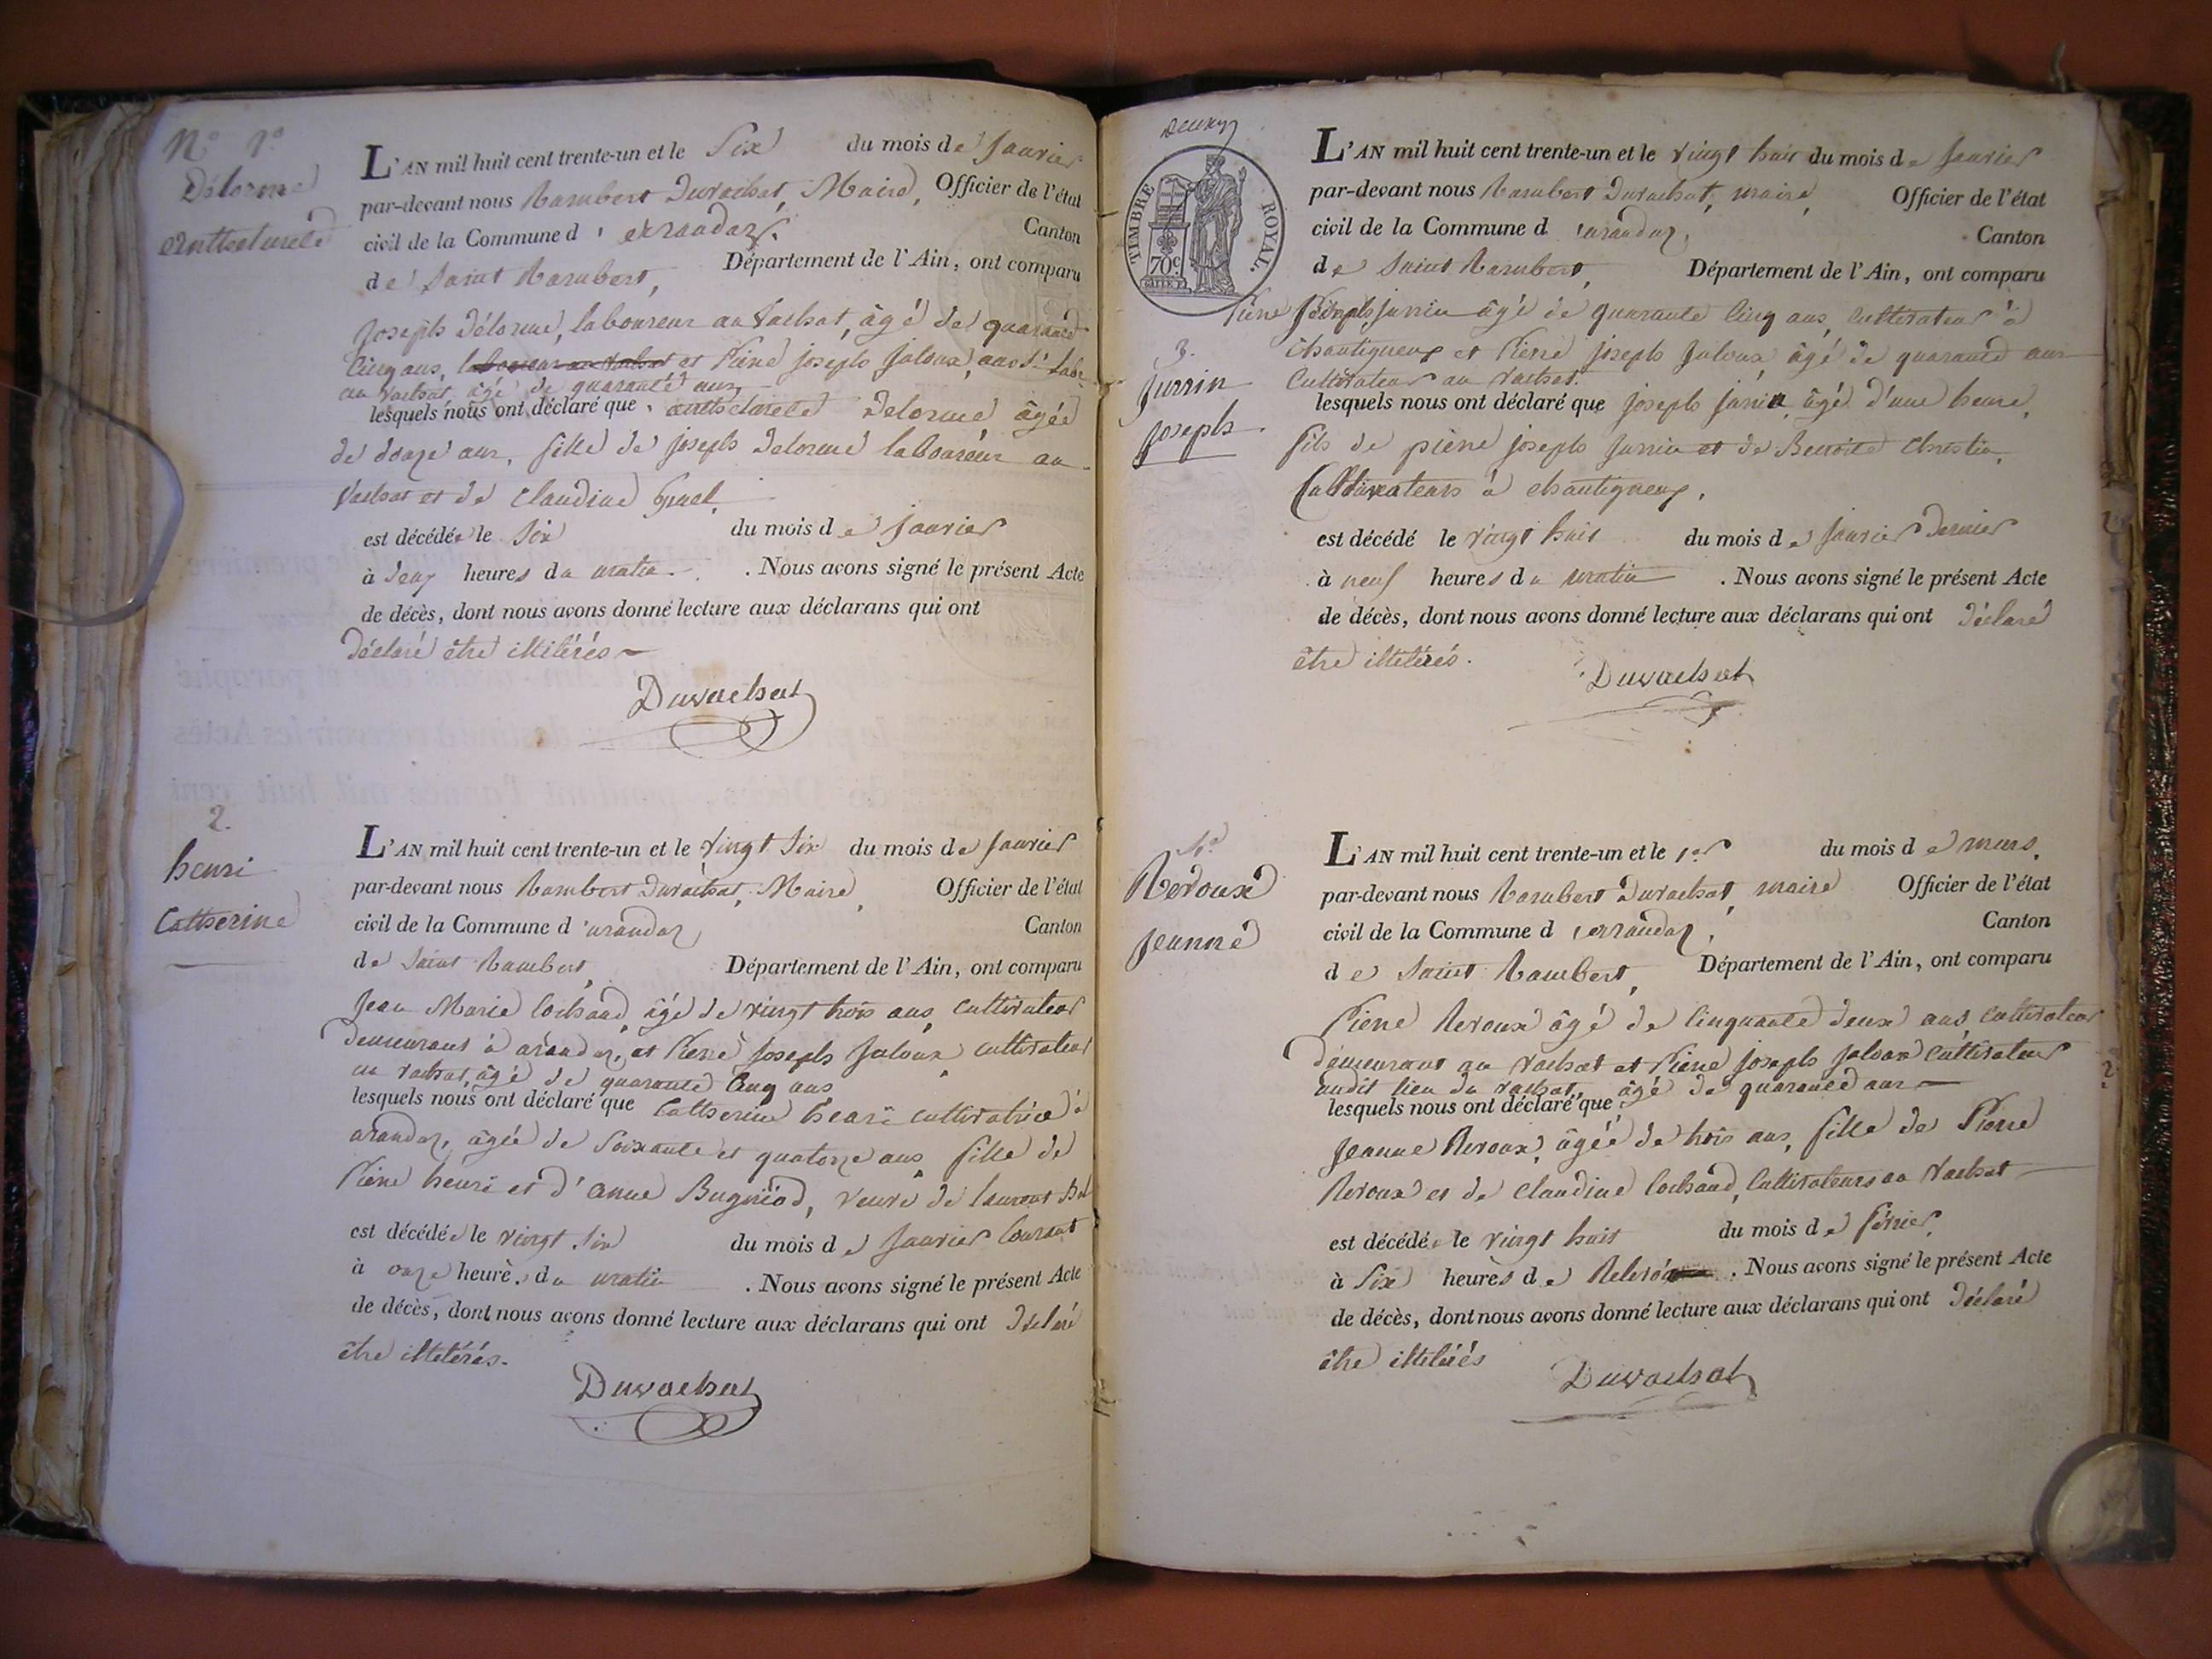 N.o 1.o
Délorme
Anthelmette
L'AN mil huit cent trente-un et le Six du mois de Janvier
par-devant nous Rambert Duvachat, Maire, Officier de l'état
civil de la Commune d'arandaz, Canton
de Saint Rambert, Département de l'Ain, ont comparu
Joseph Délorme, laboureur au Vachat, âgé de quarante
Cinq ans, laboureur au Vachat et Pierre joseph Jaloux, aussi Labr.
au Vachat âgé de quarante ans
lesquels nous ont déclaré que Delorme âgée
de douze ans, fille de joseph Delorme laboureur au
Vachat et de Claudine
est décédée le Six du mois de Janvier
à deux heures du matin . Nous avons signé le présent Acte
de décès, dont nous avons donné lecture aux déclarans qui ont
déclaré être illitérés
Duvachat
2.
henri
Catherine
L'AN mil huit cent trente-un et le vingt Six du mois de Janvier
par-devant nous Rambert Duvachat, Maire, Officier de l'état
civil de la Commune d'arandaz Canton
de Saint Rambert, Département de l'Ain, ont comparu
Jean Marie Cochand, âgé de vingt trois ans, cultivateur
demeurant à arandaz, et Pierre Joseph Jaloux cultivateur
au Vachat, âgé de quarante Cinq ans
lesquels nous ont déclaré que Catherine henri cultivatrice à
arandaz, âgée de Soixante et quatorze ans fille de
Pierre henri et d'anne Bugniod, veuve de laurent
est décédée le vingt Six du mois de Janvier Courant
à onze heure du matin . Nous avons signé le présent Acte
de décès, dont nous avons donné lecture aux déclarans qui ont déclaré
être illitérés.
Duvachat
TIMBRE ROYAL.
70c.
3.
Jurrin
joseph
L'AN mil huit cent trente-un et le vingt huit du mois de Janvier
par-devant nous Rambert Duvachat, maire, Officier de l'état
civil de la Commune d'arandaz, Canton
de Saint Rambert, Département de l'Ain, ont comparu
Pierre joseph Jurrin âgé de quarante Cinq ans, Cultivateur à
Chantigneux et Pierre joseph Jaloux, âgé de quarante ans
Cultivateur au Vachat.
lesquels nous ont déclaré que joseph Jurrin, âgé d'une heure,
fils de pierre joseph Jurrin et de Benoite Christin,
Cultivateurs à chantigneux,
est décédé le vingt huit du mois de Janvier dernier
à neuf heures du matin . Nous avons signé le présent Acte
de décès, dont nous avons donné lecture aux déclarans qui ont déclaré
être illitérés.
Duvachat
4.o
Reroux
Jeanne
L'AN mil huit cent trente-un et le 1.er du mois de mars,
par-devant nous Rambert Duvachat, maire Officier de l'état
civil de la Commune d'arandaz, Canton
de Saint Rambert, Département de l'Ain, ont comparu
Pierre Reroux âgé de Cinquante deux ans cultivateur
demeurant au Vachat et Pierre joseph Jaloux Cultivateur
audit lieu du Vachat, âgé de quarante ans
lesquels nous ont déclaré que
Jeanne Reroux, âgée de trois ans, fille de Pierre
Reroux et de Claudine Cochand, Cultivateurs au Vachat
est décédée le vingt huit du mois de février,
à Six heures de . Nous avons signé le présent Acte
de décès, dont nous avons donné lecture aux déclarans qui ont déclaré
être illitérés
Duvachat